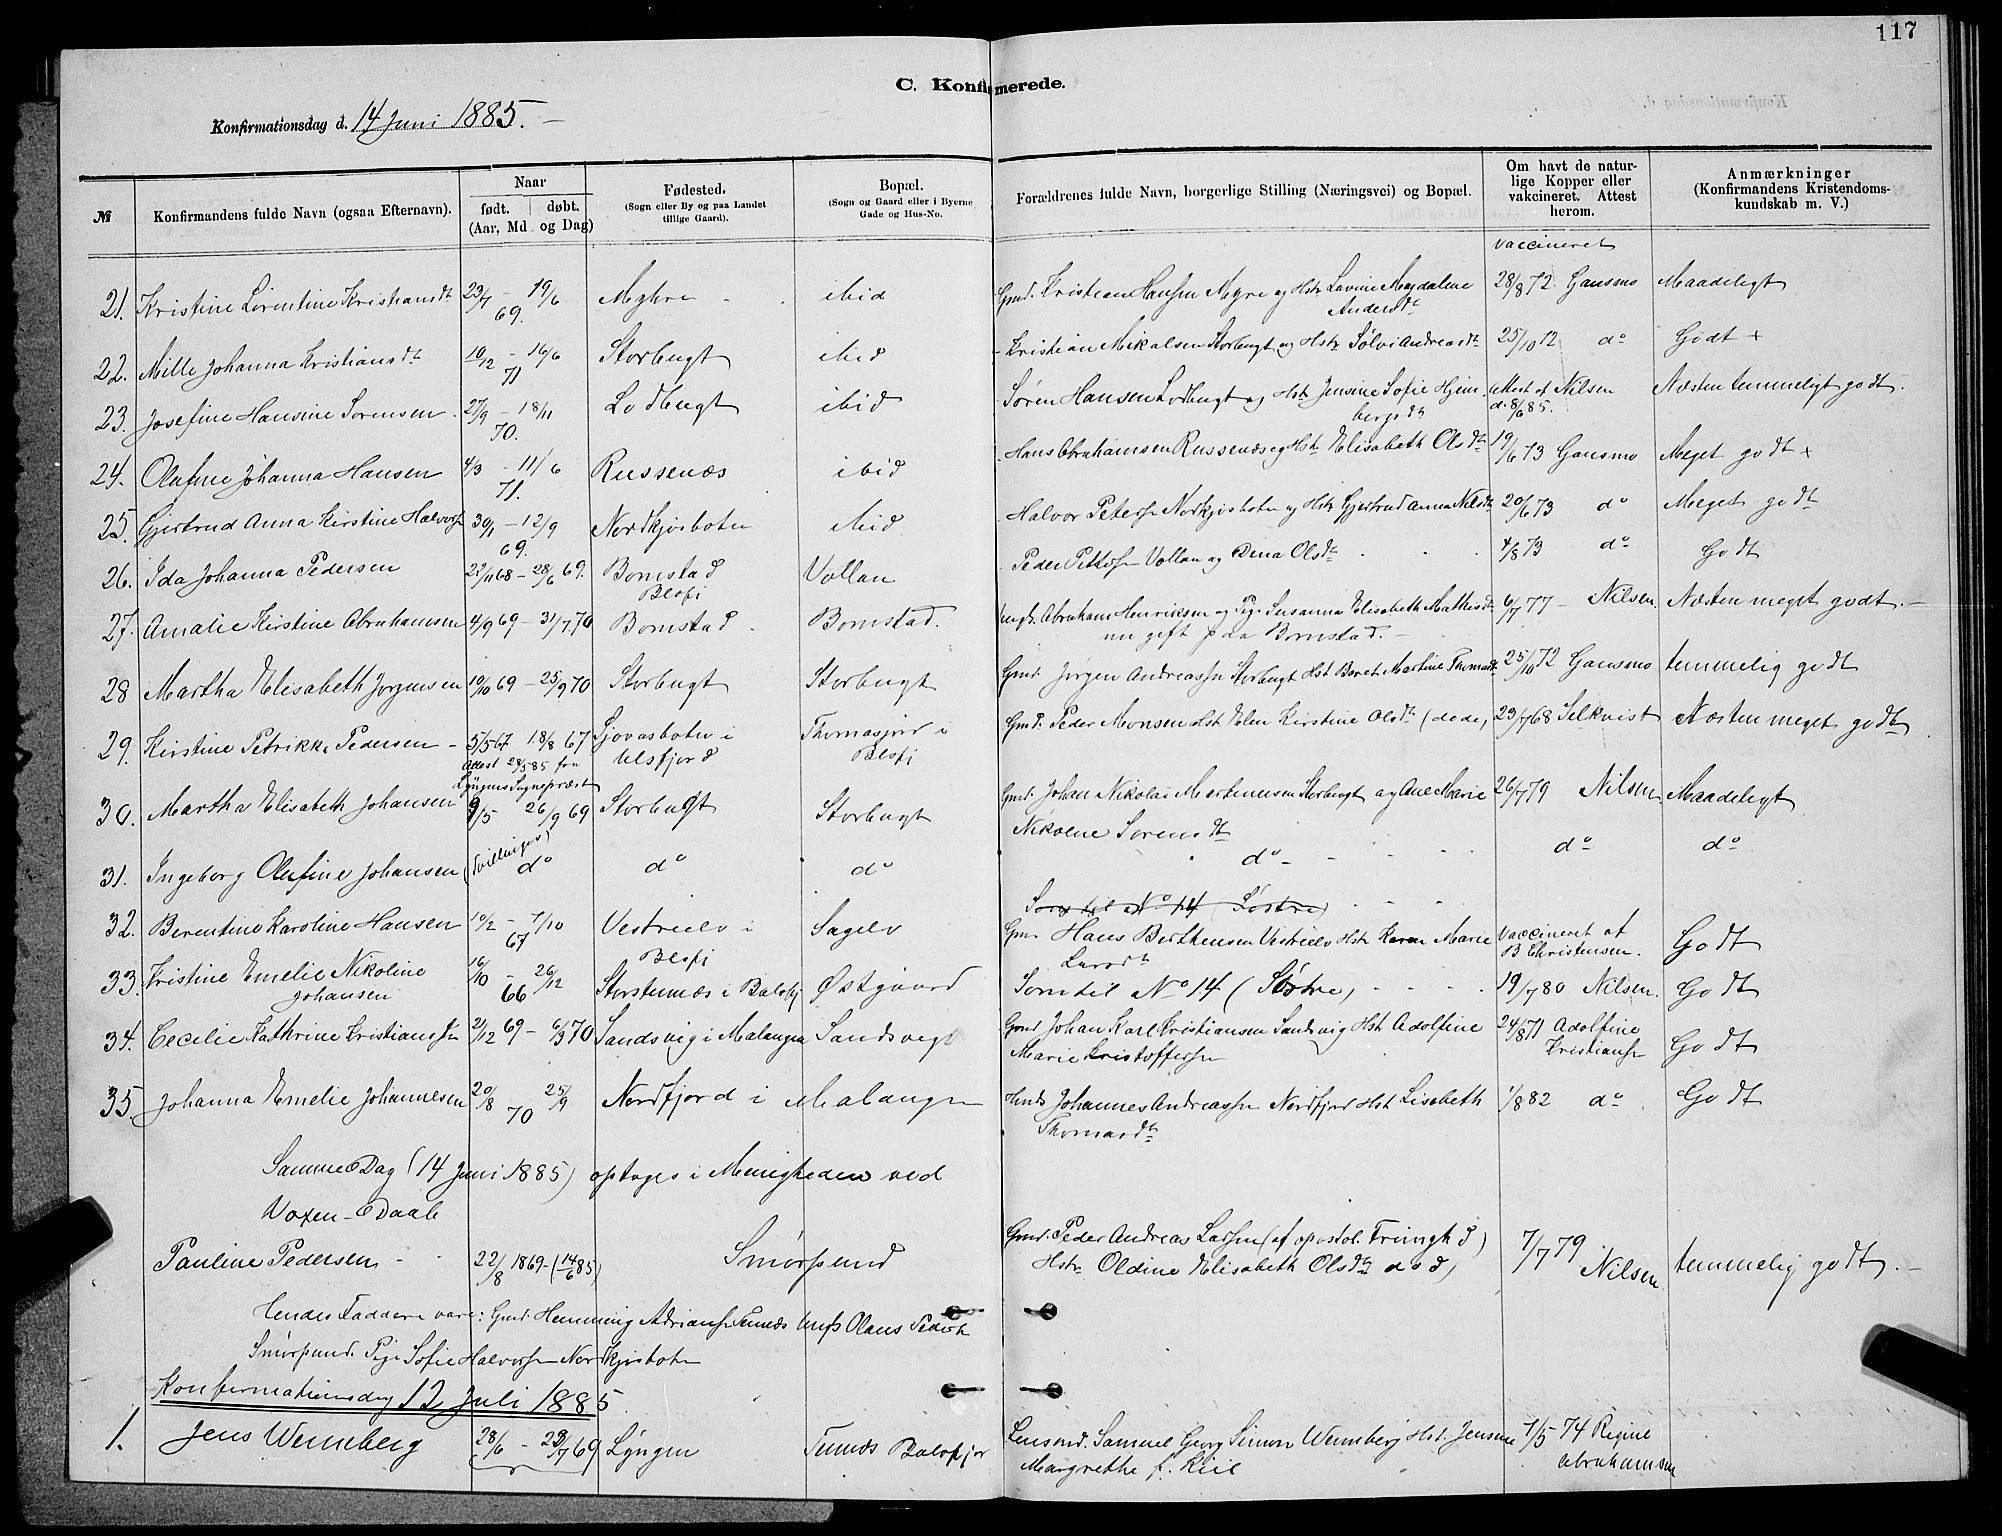 117
C. Konfirmerede.
Konfirmationsdag d. 14 Juni 1885. –
№ Konfirmandens fulde Navn (ogsaa Efternavn). Naar født. døbt. (Aar, Md og Dag) Fødested. (Sogn eller By og paa Landet tillige Gaard). Bopæl. (Sogn og Gaard eller i Byerne Gade og Hus-No. Forældrenes fulde Navn, borgerlige Stilling (Næringsvei) og Bopæl. Om havt de naturlige Kopper eller vakcineret. Attest herom. Anmærkninger (Konfirmandens Kristendomskundskab m. V.)
vaccineret
21. Kristine Lorentine Kristiansdt 23/7 – 19/6 69. ibid Gmd. Kristian Hansen Myre og Hstr Lovine Magdalene Andersdt 28/8 72. Gausmo Maadeligt
22. Mille Johanna Kristiansdt 10/12 – 16/6 71 Storbugt ibid Kristian Mikalsen Storbugt og Hstr Sølvi Andreasdt 25/10 72 do Godt +
23. Josefine Hansine Sørensen 27/9 – 18/11 70. Lodbugt ibid Søren Hansen Lodbugt og Hstr Jensine Sofie Hjembergsdt Attest af Nilsen d. 8/6 85. Næsten temmeligt godt.
24. Olufine Johanna Hansen 4/3 – 11/6 71. Russenæs ibid Hans Abrahamsen Russenæs og Hstr Elisabeth Olsdt 19/6 73 Gausmo Meget godt +
25. Gjertrud Anna Kirstine Halvors 30/1 – 12/9 69. Nordkjosboten ibid Halvor Peters Nordkjosboten og Hstr Gjertrud Anna Nilsdt 20/6 73 do Meget godt
26. Ida Johanna Pedersen 22/11 68 – 28/6 69. Bomstad Blsfj Vollan Peder Vollan og Dina Olsdt 4/8 73 do Godt
27. Amalie Kirstine Abrahamsen 4/9 69 – 31/7 70 Bomstad Bomstad. Ungk. Abraham Henriksen og Pige Susanna Elisabeth Mathisdt nu gift paa Bomstad. – 6/7 77 – Nilsen. Næsten meget godt. –
28 Martha Elisabeth Jørgensen 19/10 69 – 25/9 70 Storbugt Storbugt Gmd. Jørgen Andreassn Storbugt Hst Beret Martine Thomasdt 25/10 72 Gausmo temmelig godt
29. Kirstine Petrikke Pedersen – 5/5 67 18/8 67 Attest 29/5 85 fra Lyngens Sognepræst Sjovasboten i Ulsfjord Thomasjord i Blsfj Gmd. Peder Monsen Hst. Elen Kirstine Olsdt (døde) 23/7 68 Selkvist Næsten meget godt
30. Martha Elisabeth Johansen 9/5 26/9 69 Storbugt Storbugt Gmd. Johan Nikolai Mortensen Storbugt og Ane Marie Nikoline Sørensdt 26/7 79 Nilsen Maadeligt
31. Ingeborg Olufine Johansen (Tvillinger) do do do do – do do
Som til No 14 (Søstre)
32. Berentine Karoline Hansen 10/2 – 7/10 67 Vestrielv i Blsfj Sagelv Gmd Hans Berthensen Vestrielv Hstr Karen Marie Larsdt Vaccineret af B Christensen. Godt
33. Kristine Emelie Nikoline Johansen 16/10 – 26/12 66 Storstennæs i Balsfj Østgaard Som til No 14 (Søstre) 19/7 80 Nilsen. Godt
34. Cecilie Kathrine Kristianssen 2/12 69 – 6/3 70 Sandsvig i Malangen Sandsvig Gmd Johan Karl Kristiansen Sandsvig Hst Adolfine Marie Kristoffersen 24/8 71 Adolfine Kristians Godt
35. Johanna Emelie Johannesen 20/8 25/9 70 Nordfjord i Malangen Johannes Andreassn Nordfjord Hst Lisabeth Thomasdt 1/8 82 do Godt
Samme Dag (14 Juni 1885) optoges i Menigheden ved
Voxen-Daab
Pauline Pedersen – 22/8 1869 – (14/6 85) Smørsund Gmd. Peder Andreas Larsen (af apostol. Frimgh d) Hstr. Oldine Elisabeth Olsdt død) 7/7 79 Nilsen temmelig godt. –
Hendes Faddere vare: Gmd. Hemming Adrians Tennæs Ungk Olaus Peders
Smørsund. Pige Sofie Halvors Nordkjosboten
Konfirmationsdag 12 Juli 1885
1. Jens Wennberg 28/6 – 29/7 69 Lyngen Tennæs Balsfjor Lensmd. Samuel Georg Simon Wennberg Hst. Jensine Margrethe f. Kiil 7/5 74 Regine Abrahamsen